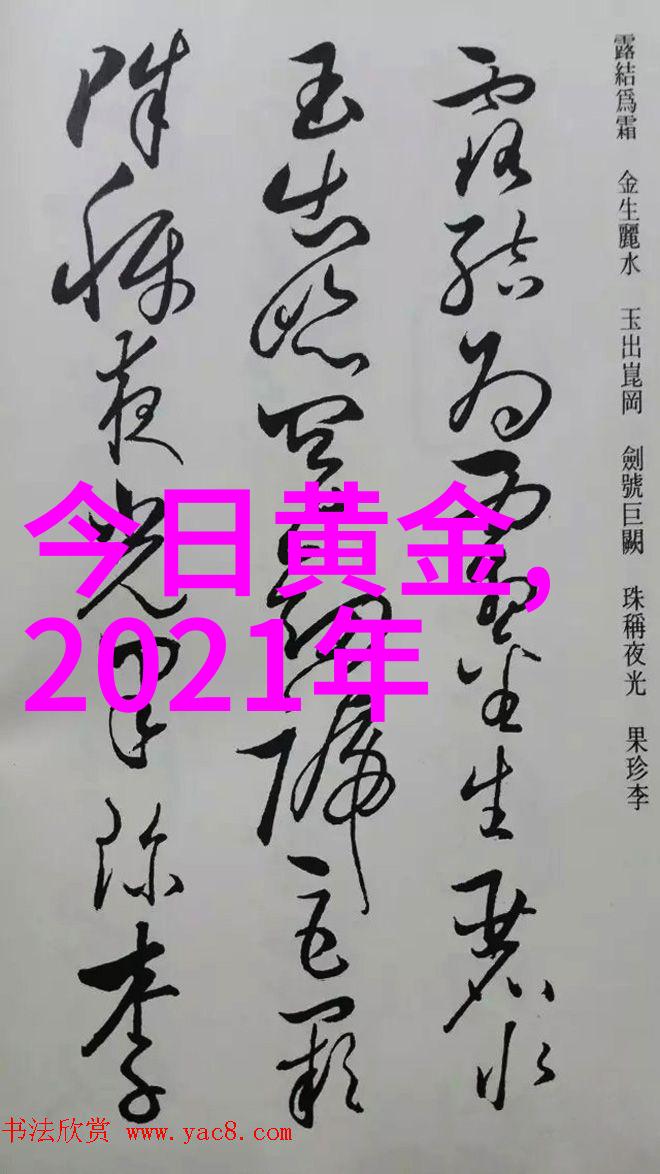 露結為霜 金生麗水 玉出崑岡 劍號巨闕 珠稱夜光 果珍李
露结为霜金生麗水
玉出崑岡劍號巨闕
珠稱夜光果珍李
今日黄金,
2021年
书法欣赏 www.yac8.com